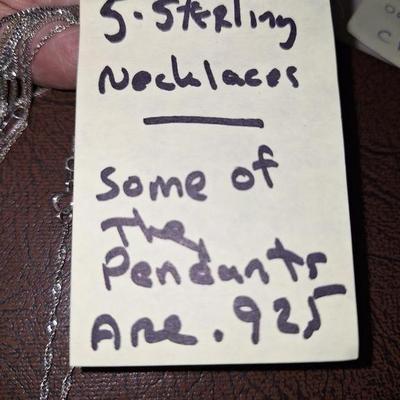 5. Sterling
Necklaces
Some of
The
Pendants
Are .925